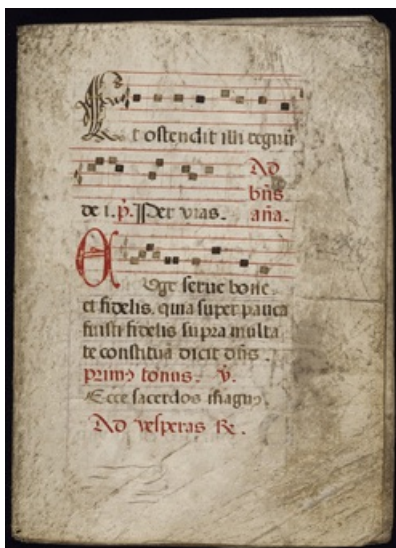 Et ostendit illi regnū
Ad
bn̄s
de i. p̄. Per vias. an̄a.
Euge serue bone.
et fidelis, quia super pauca
fuisti fidelis supra multa
te constituā dicit dn̄s.
primꝰ tonus. v̄.
Ecce sacerdos magnꝰ.
Ad vesperas R̄.